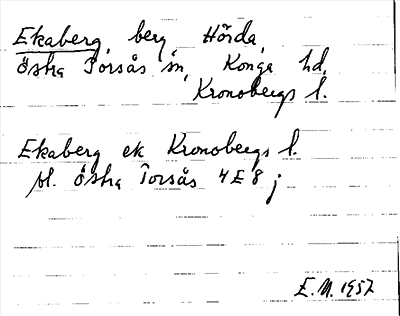 Ekaberg, berg, Hörda,
Östra Torsås sn, Konga hd,
Kronobergs l.
Ekaberg ek Kronobergs l.
bl. Östra Torsås 4E8j
E.N. 1957